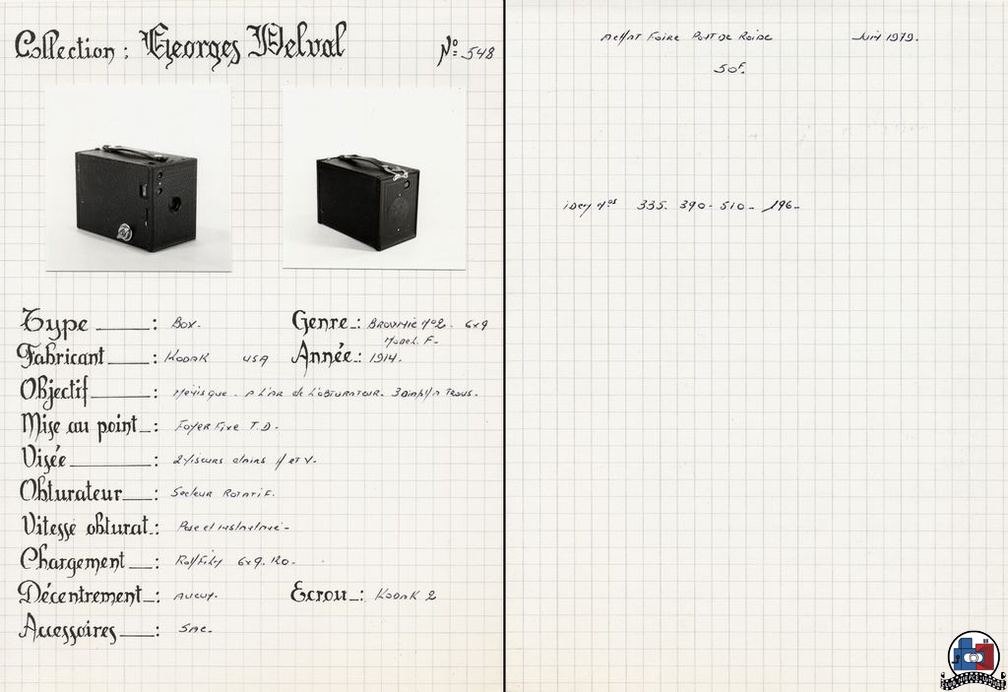 Collection : Georges Delval Nº: 548
Type : Box.
Genre : Brownie nº2. 6x9
Model. F-
Fabricant : Kodak USA
Année : 1914.
Objectif : Ménisque - A l'AR de l'obturateur. 3 Trous.
Mise au point : Foyer Fixe T.D.
Visée : 2 Viseurs clairs H et V.
Obturateur : Secteur Rotatif.
Vitesse obturat : Pose et
Chargement : RollFilm 6x9. 120.
Décentrement : Aucun.
Ecrou : Kodak 2
Accessoires : Sac.
Achat Foire Pont de Roide Juin 1979.
50F.
idem nos 335. 390- 510- 196-